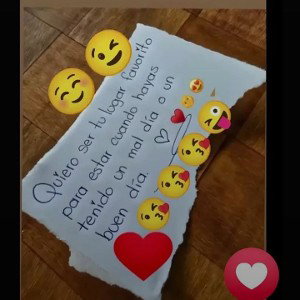 Quiero ser tu lugar favorito
para estar cuando hayas
tenido un mal día o un
buen día.